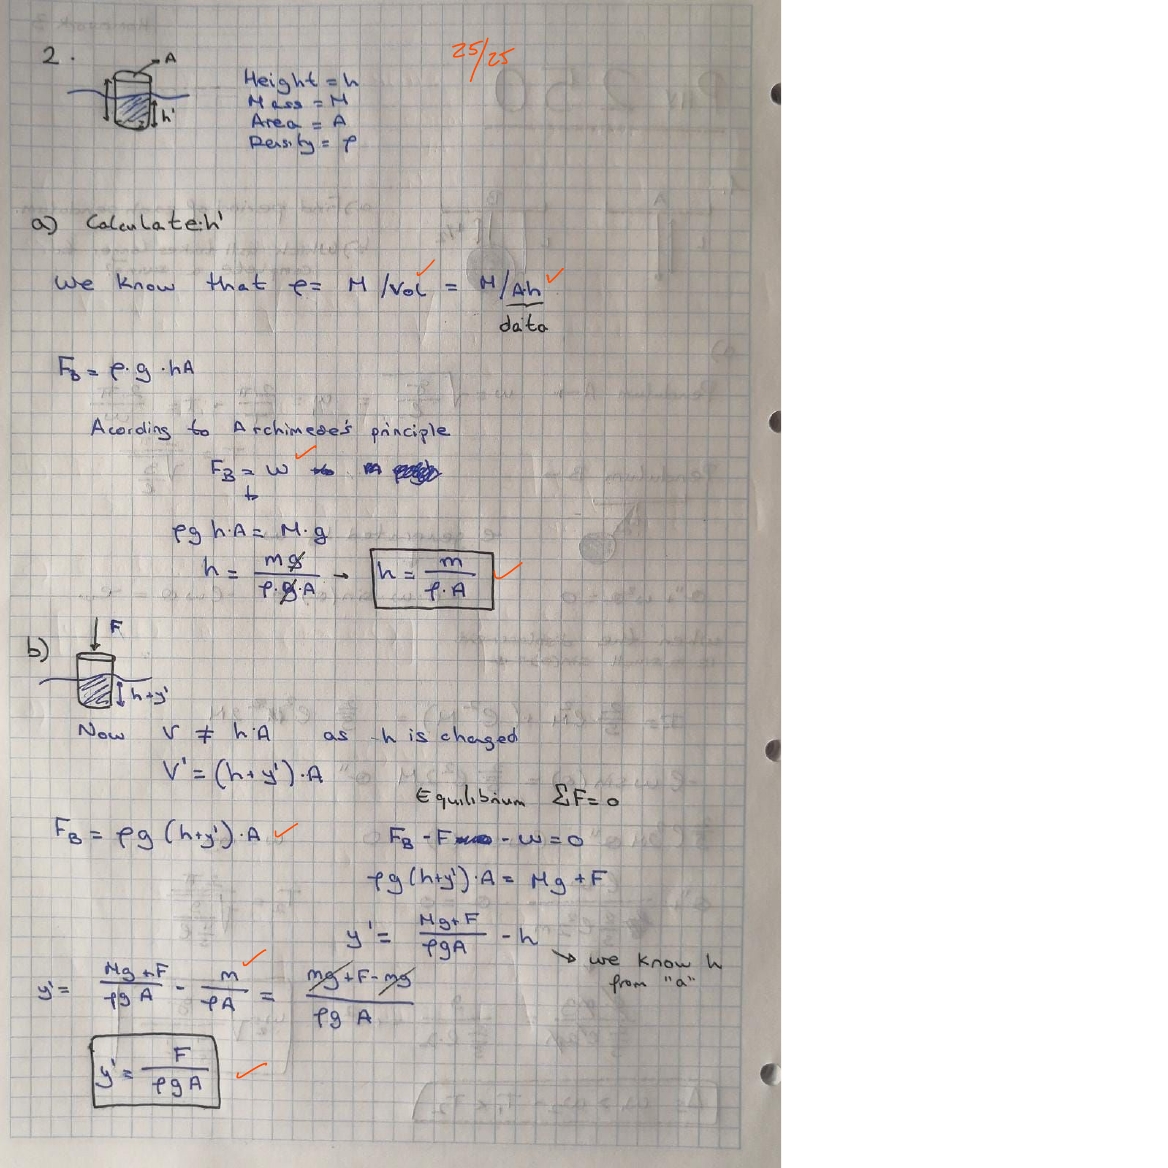 25/25
2.
A
h'
Height = h
Mass = M
Area = A
Density = ρ
a) Calculate: h'
We know that ρ = M/Vol = M/A·h
data
F_B = ρ·g·hA
Acording to Archimedes's principle
F_B = w
ρg h·A = M·g
h = mg/ρ·g·A → h = m/ρ·A
b)
F
h+y'
Now V ≠ h·A as h is changed
V' = (h+y')·A
Equilibrium ΣF=0
F_B = ρg(h+y')·A
F_B - F - w = 0
ρg(h+y')·A = Mg + F
y' = Mg+F/ρgA - h
→ we know h
from "a"
y' = Mg+F/ρgA - m/ρA = mg+F-mg/ρgA
y' = F/ρgA